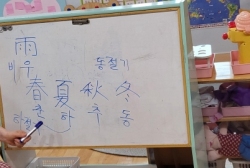 雨
비 우 동절기
春 夏 秋 冬
춘 하 추 동